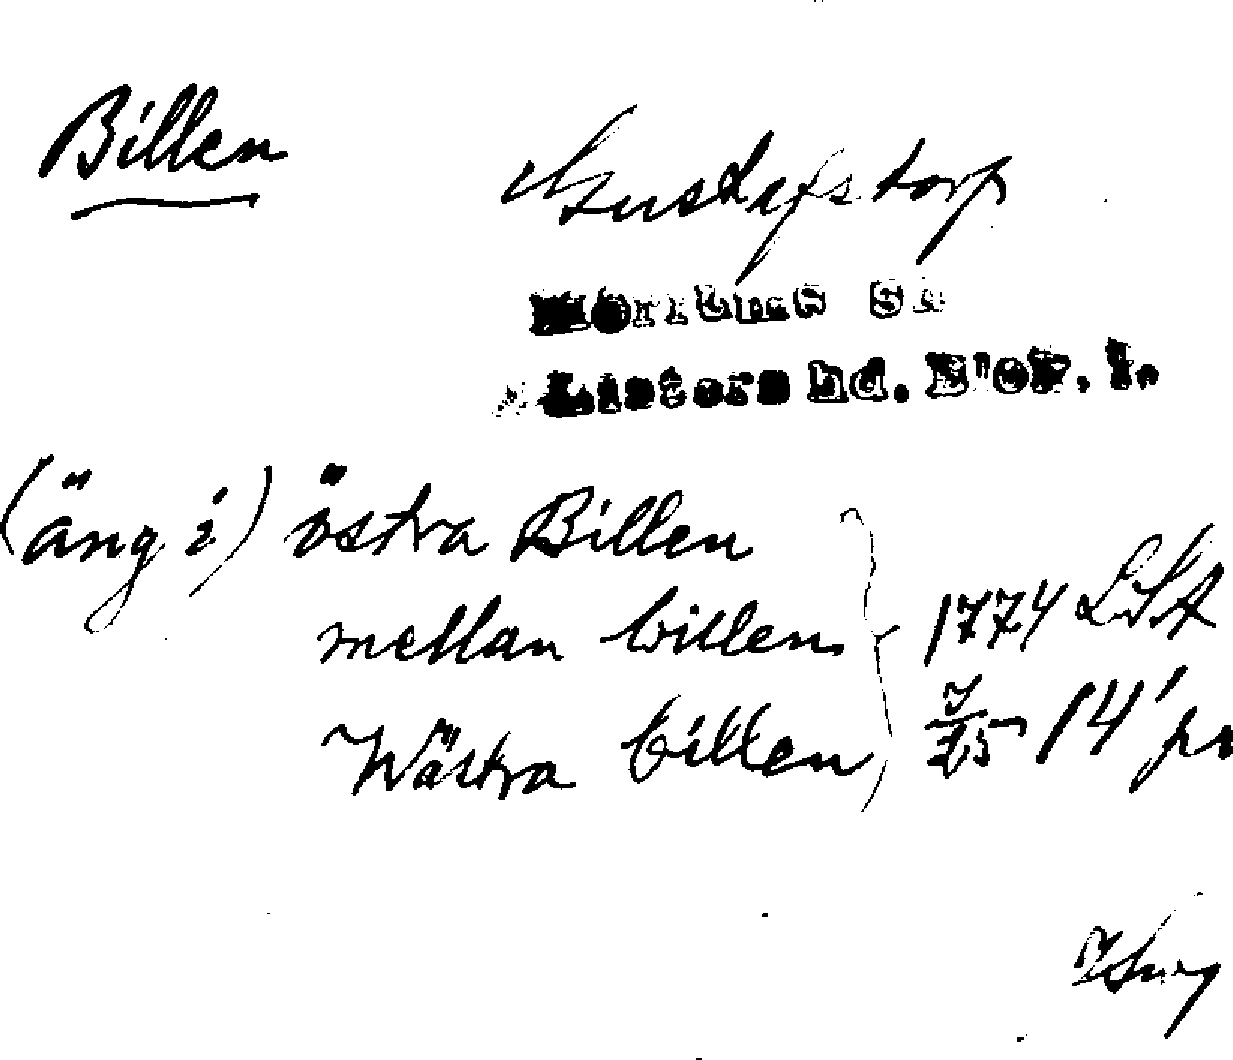 Billen
Gustafstorp
Mörrums sn
Listers hd. Blek. l.
(äng i) östra Billen
mellan billen
Wästra billen
1774 LSA
14' pr